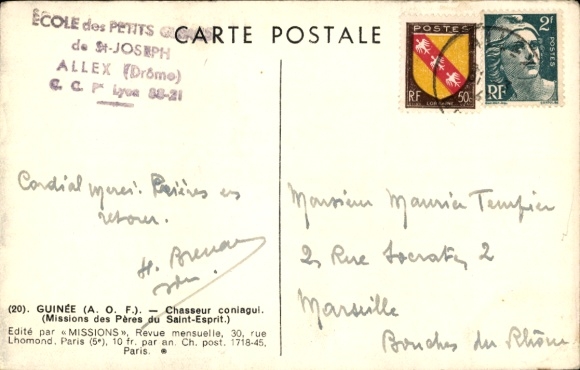 ÉCOLE des PETITS
de St-JOSEPH
ALLEX (Drôme)
C. C. Pal Lyon 88-21
CARTE POSTALE
POSTES
LORRAINE
RF 50c
2F
POSTES
RF
Cordial merci. Prières en
retour.
H.
Monsieur Maurice Tempier
2, Rue Socrate, 2
Marseille
Bouches du Rhône
(20). GUINÉE (A. O. F.). — Chasseur coniagui.
(Missions des Pères du Saint-Esprit.)
Edité par « MISSIONS », Revue mensuelle, 30, rue
Lhomond, Paris (5e), 10 fr. par an. Ch. post. 1718-45,
Paris.